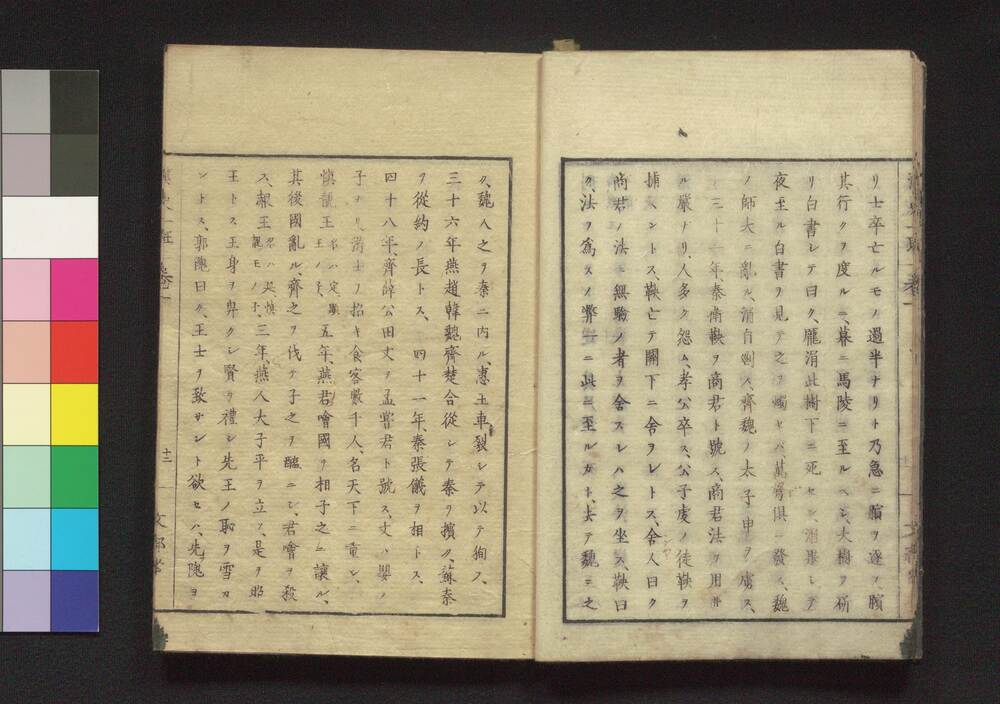 リ士卒亡ルモノ過半ナリト乃急ニ臏ヲ逐フ、臏
其行クヲ度ルニ、暮ニ馬陵ニ至ルヘシ、大樹ヲ斫
リ白書シテ曰ク、龐涓此樹下ニ死セン、涓果シテ
夜至ル白書ヲ見テ之ヲ燭セハ萬弩俱ニ發ス、魏
ノ師大ニ亂ル、涓自刎ス、齊魏ノ太子申ヲ虜ス、
三十一年、秦衛鞅ヲ商君ト號ス、商君法ヲ用井
ル嚴ナリ、人多ク怨ム、孝公卒ス、公子虔ノ徒鞅ヲ
捕ヘントス、鞅亡テ關下ニ舍ヲレトス、舍人曰ク
商君ノ法ニ無驗ノ者ヲ舍スレハ之ヲ坐ス、鞅曰
ク、法ヲ爲スノ弊一ニ此ニ至ルカト、去テ魏ニ之
ク、魏人之ヲ秦ニ内ル、惠王車裂シテ以テ徇フ、
三十六年、燕趙韓魏齊楚合從シテ秦ヲ擯ク、蘇秦
ヲ從約ノ長トス、 四十一年、秦張儀ヲ相トス、
四十八年、齊薛公田文ヲ孟嘗君ト號ス、文ハ嬰ノ
子ナリ、游士ヲ招キ食客數千人、名天下ニ重シ、
愼靚王名ハ定、顯王ノ子、五年、燕君噲國ヲ相子之ニ讓ル、
其後國亂ル、齊之ヲ伐テ子之ヲ醢ニシ、君噲ヲ殺
ス、赧王名ハ延、愼靚王ノ子、三年、燕人太子平ヲ立ツ、是ヲ昭
王トス王身ヲ卑クシ賢ヲ禮シ先王ノ恥ヲ雪カ
ントス、郭隗曰ク、王士ヲ致サント欲セハ、先隗ヨ
十二
文部省